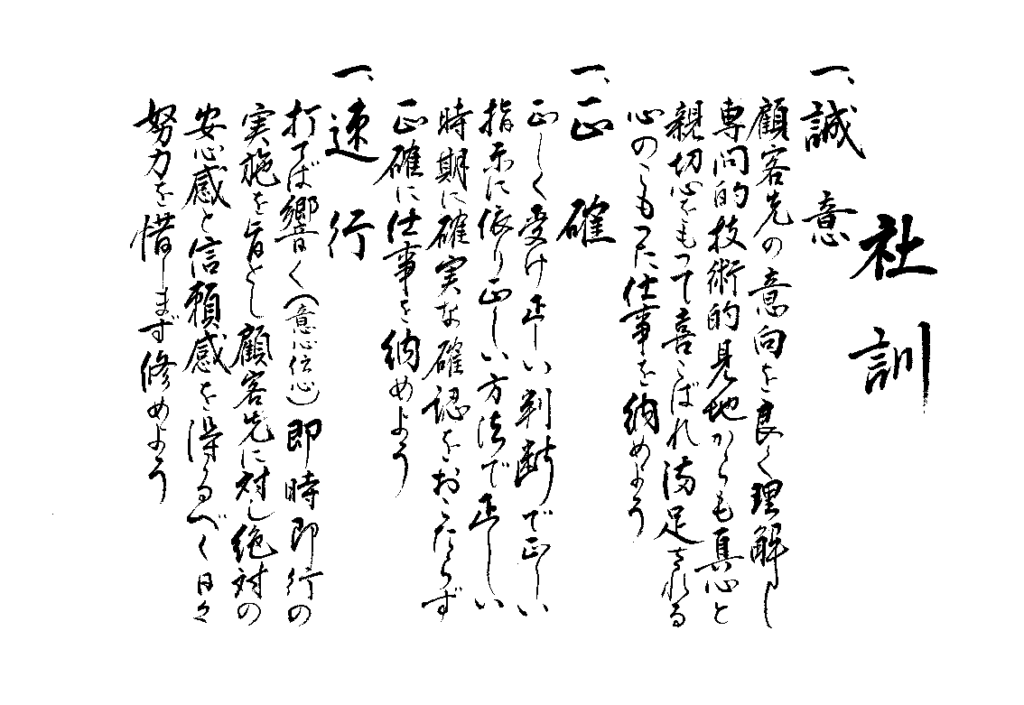 社訓
一、誠意
顧客先の意向を良く理解し
専門的技術的見地からも真心と
親切心をもって喜こばれ満足される
心のこもった仕事を納めよう
一、正確
正しく受け正しい判断で正しい
指示に依り正しい方法で正しい
時期に確実な確認をおこたらず
正確に仕事を納めよう
一、速行
打てば響く(意心伝心)即時即行の
実施を旨とし顧客先に対し絶対の
安心感と信頼感を得るべく日々
努力を惜しまず修めよう